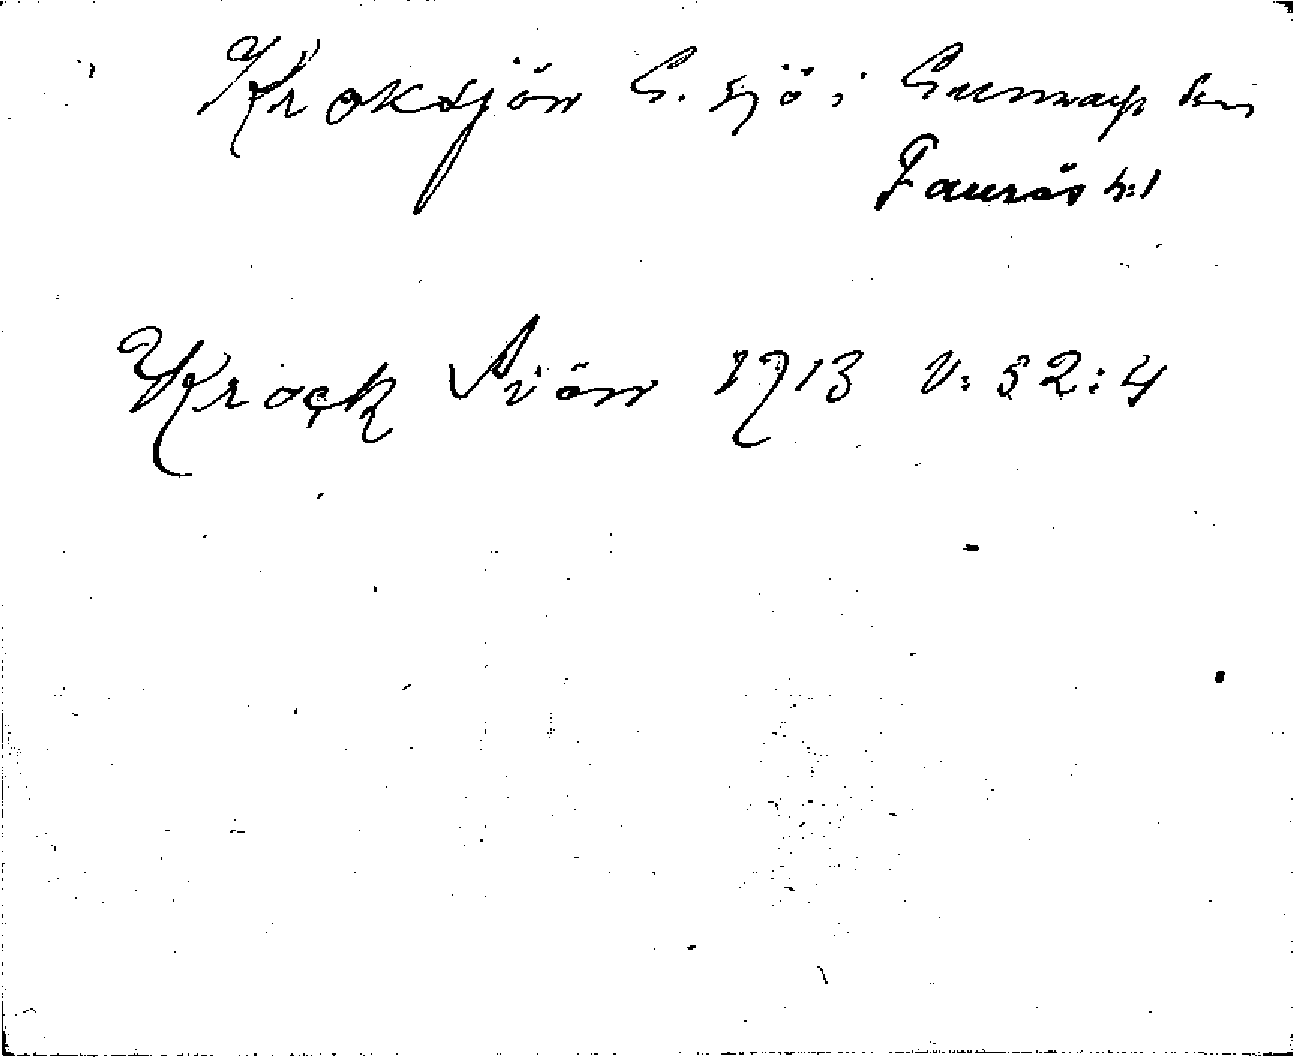 Kroksjön G. sjö i Gunnarps sn
Faurås h:d
Krock Siön 1713 N: 52:4